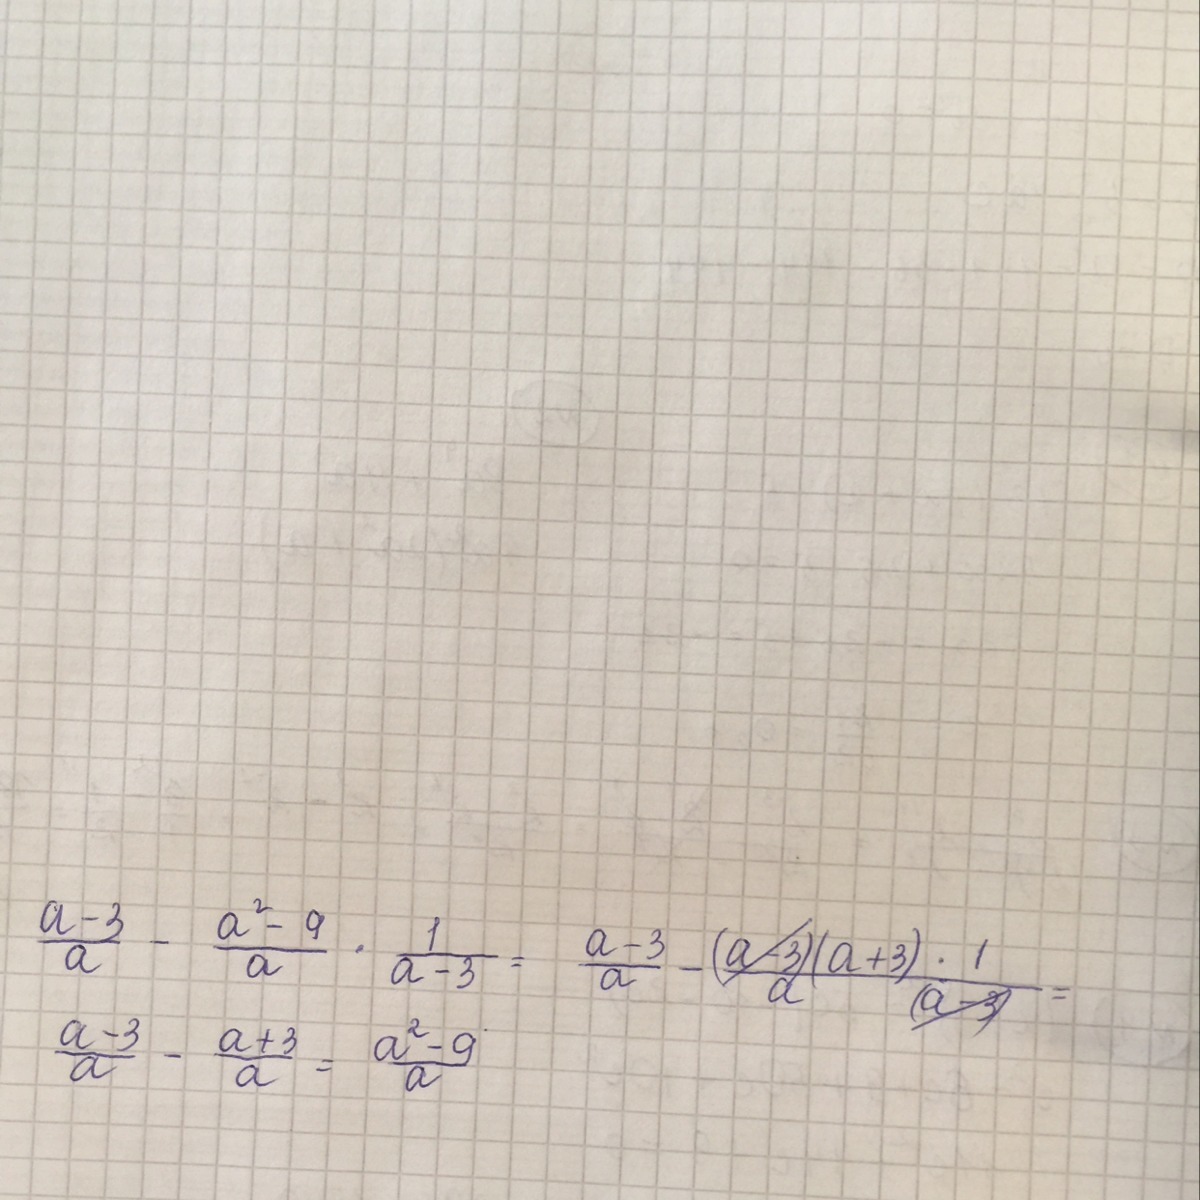 (a-3)/a - (a²-9)/a · 1/(a-3) = (a-3)/a - (a-3)(a+3)·1/a(a-3) =
(a-3)/a - (a+3)/a = (a²-9)/a